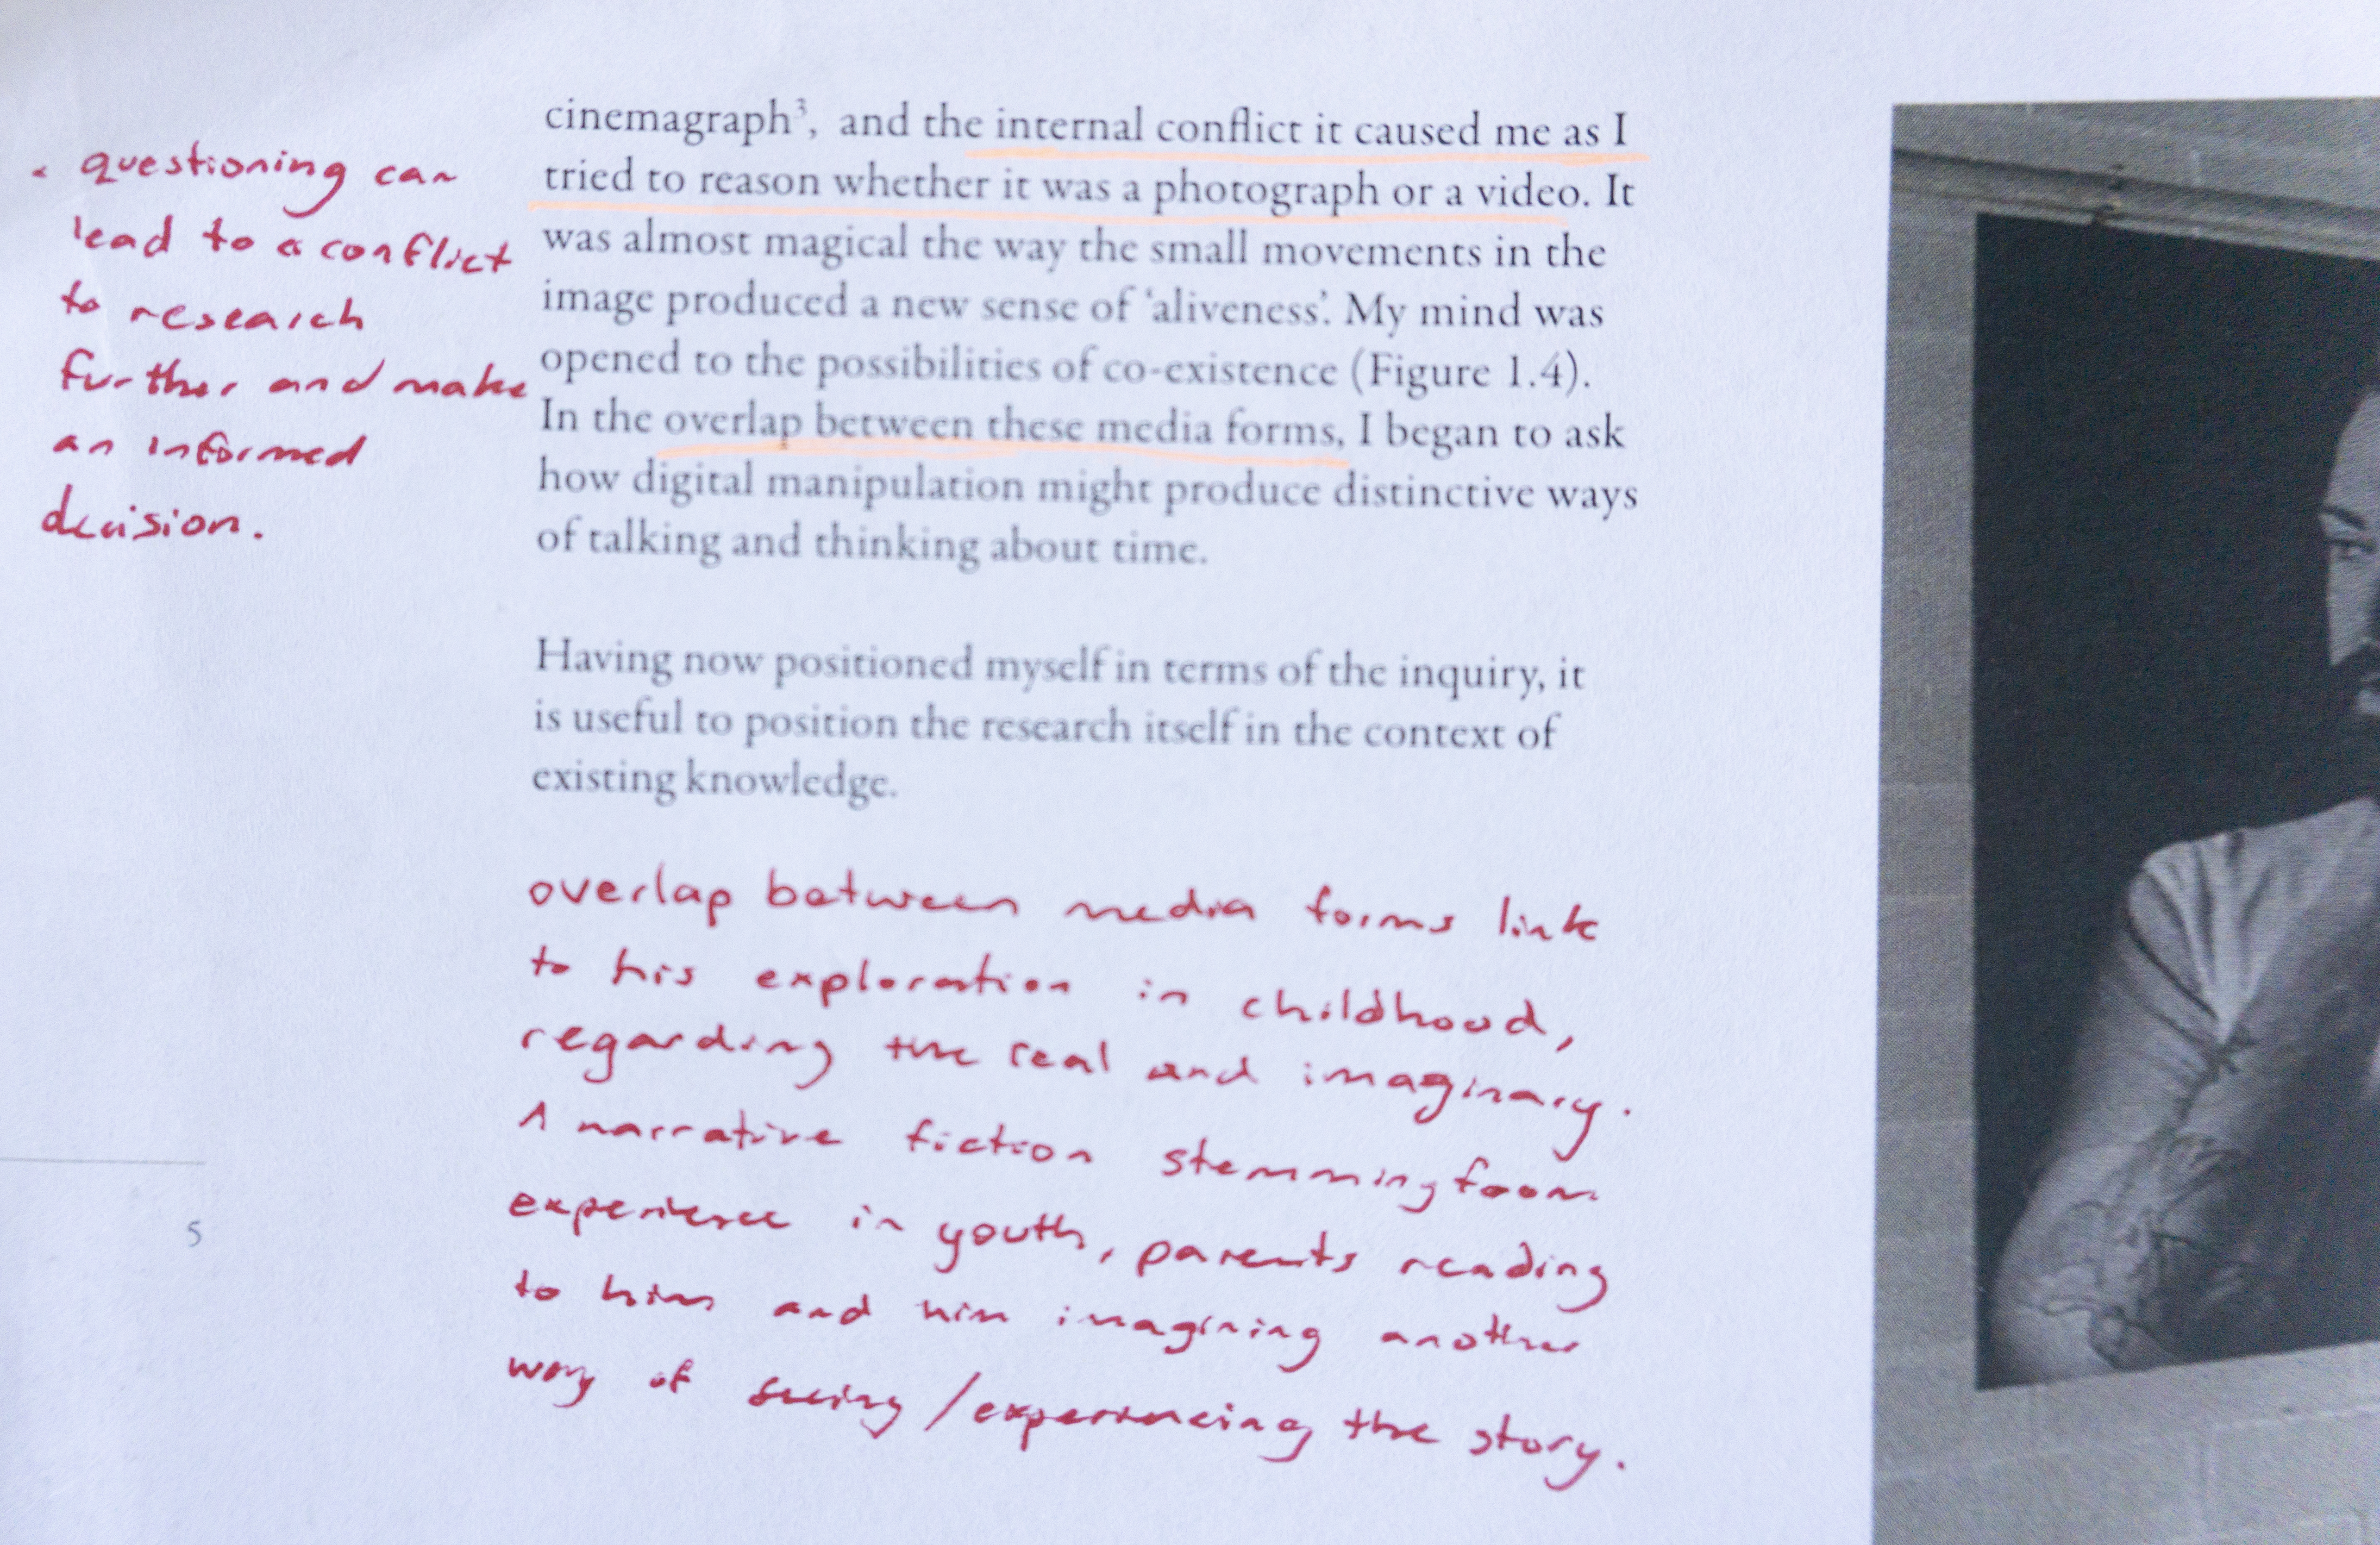 • questioning can
lead to a conflict
to research
further and make
an informed
decision.
cinemagraph³, and the internal conflict it caused me as I
tried to reason whether it was a photograph or a video. It
was almost magical the way the small movements in the
image produced a new sense of ‘aliveness’. My mind was
opened to the possibilities of co-existence (Figure 1.4).
In the overlap between these media forms, I began to ask
how digital manipulation might produce distinctive ways
of talking and thinking about time.
Having now positioned myself in terms of the inquiry, it
is useful to position the research itself in the context of
existing knowledge.
overlap between media forms link
to his exploration in childhood,
regarding the real and imaginary.
A narrative fiction stemming from
experience in youth, parents reading
to him and him imagining another
way of seeing / experiencing the story.
5